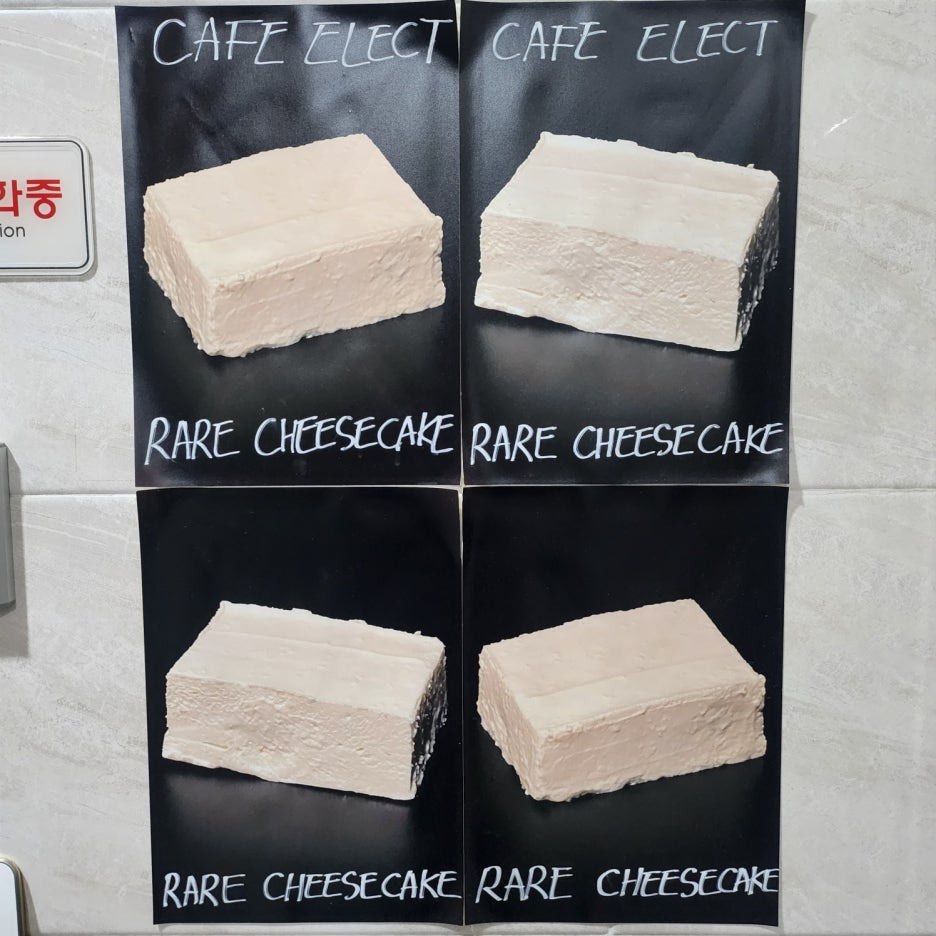 CAFE ELECT
CAFE ELECT
화중
ion
RARE CHEESECAKE
RARE CHEESECAKE
RARE CHEESECAKE
RARE CHEESECAKE